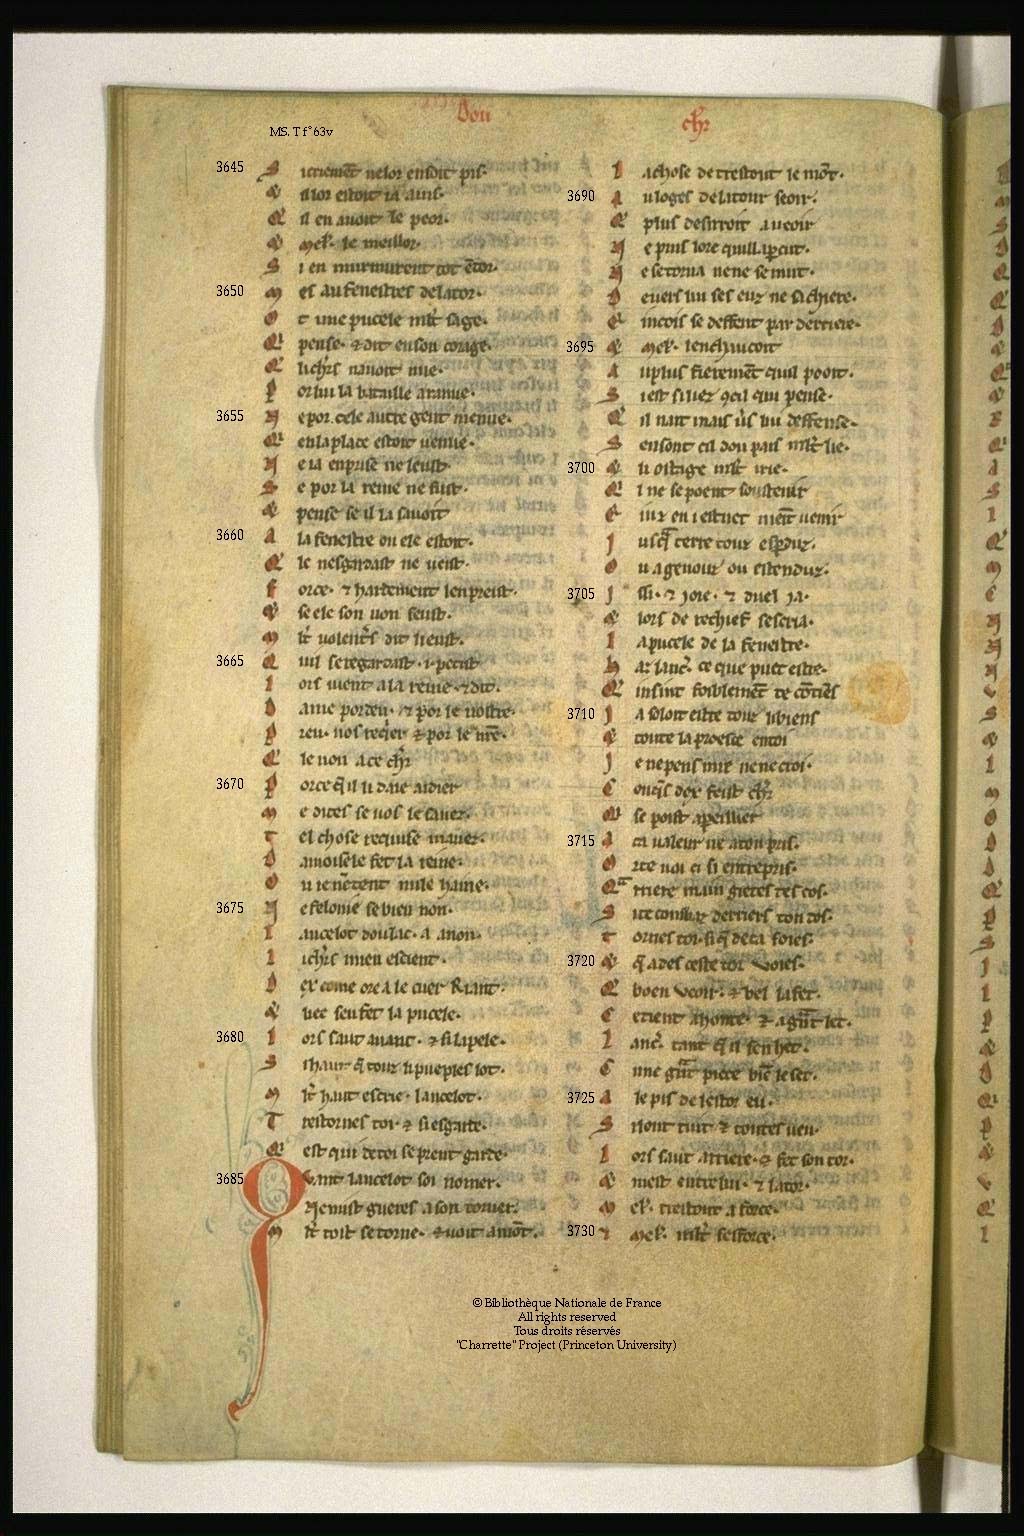 MS. T f° 63v
Dou
chr
3645 S ieriement ne lor en soit pis.
Q il lor estoit ia auis.
Q il en auoit le peor.
Mel. le meillor.
S i en murmurent tot entor.
3650 M es au fenestres de la tor.
O t une pucele mlt sage.
Q pense. et dit en son corage.
Q li chrs nauoit mie.
P or lui la bataille aramie.
3655 N e por cele autre gent menue.
Q en la place estoit uenue.
N e ia enprise ne leust.
S e por la reine ne fust.
Q pense se il la sauoit
3660 A la fenestre ou ele estoit.
Q le nesgardast ne ueist.
F orce. et hardement lenpreist.
Q se ele son non seust.
M lt volentiers dit li eust.
3665 Q uil se regardast. i. petit
L ors uient a la reine. et dit.
D ame por deu. et por le uostre.
P reu. uos reqier et por le nre.
Q le non a ce chr
3670 P or ce q il li doie aidier
M e dites se uos le sauez.
T el chose requise mauez.
D amoisele fet la reine.
O u ie nentent nule haine.
3675 N e felonie se bien non.
L ancelot dou lac. a a non.
L i chrs mien escient.
D ex come ore a le cuer Riant.
Q uec seu fet la pucele.
3680 L ors saut auant. et si lapele.
S i haut q touz li pueples lot.
M lt haut escrie. lancelot.
T restornes toi. et si esgarde.
Q est qui de toi se prent garde.
3685 Quant lancelot soi nomer.
Ne mist gueres a son torner.
M lt tost se torne. et uoit amont.
L a chose de trestout le mont.
3690 A u loges de la tour seoir.
Q plus desirroit a ueoir
N e puis lore quill. lapercut.
N e se torna ne ne se mut.
D euers lui ses euz ne sa chiere.
E incois se deffent par derriere.
3695 Q mel. lenchaucoit
A u plus fierement quil pooit.
S i est si liez
Q il nait mais uers lui deffense.
S en sont cil dou pais mlt lie.
3700 Q li ostrage mlt irie.
Q i ne se poent soustenir
E inz en i estuet maint uenir
J usq terre touz esperduz.
O u a genouz ou estenduz.
3705 J ssi. et joie. et duel ja.
Q lors de rechief sescria.
L a pucele de la fenestre.
H a: lanc. ce que puet estre.
Q insint folement te contiens
3710 J a soloit estre touz li biens
Q toute la proesce en toi
J e ne pens mie ne ne croi.
C onqes dex feist chr
Q se poist apeillier
3715 A ta ualeur ne a ton pris.
O rte uoi ci si entrepris.
Q arriere main gietes tes cos.
S i te combaz derriers ton dos.
T ornes toi si q deca soies.
3720 Q q ades ceste tor voies.
Q boen veoir. et bel la fet.
C e tient a honte. et a gnt let.
L anc. tant q il sen het.
C une gnt piece bien le set.
3725 A le pis de lestor eu.
S i lont tuit et toutes ueu.
L ors saut arriere. et fet son tor.
Q met entre lui. et la tor.
M el. trestout a force.
3730 Q mel. mlt sesforce.
© Bibliothèque Nationale de France
All rights reserved
Tous droits réservés
"Charrette" Project (Princeton University)